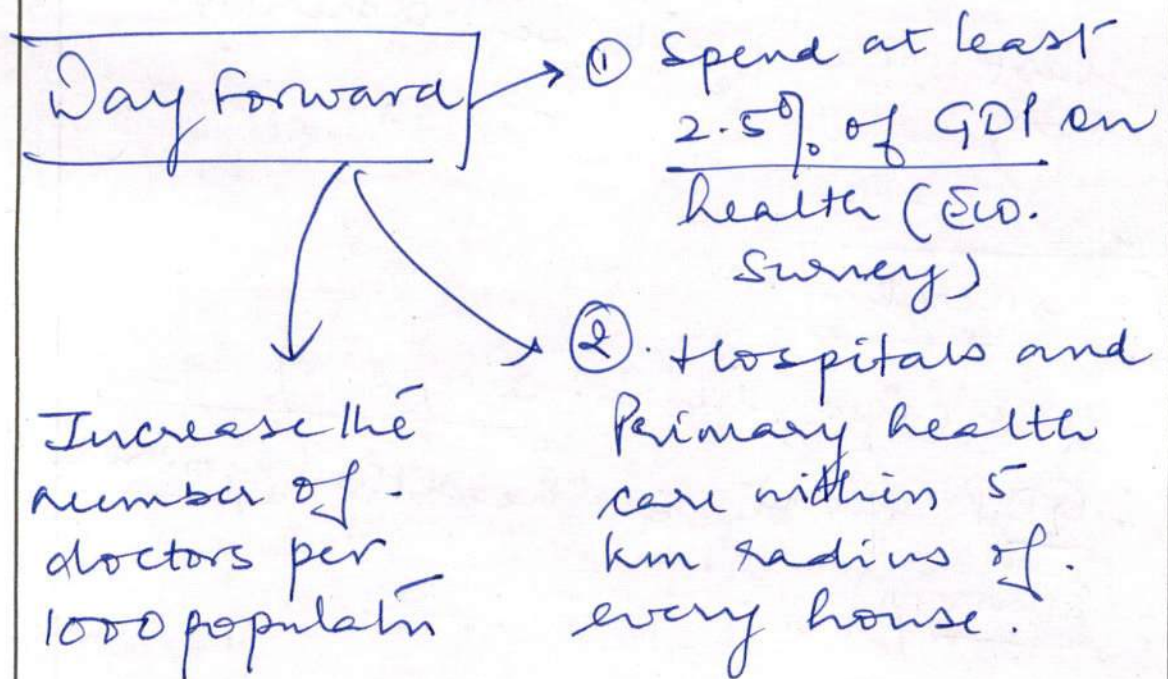 Way Forward
① Spend at least
2.5% of GDP on
health (Eco.
Survey)
② Hospitals and
Primary health
care within 5
km radius of
every house.
Increase the
number of
doctors per
1000 populatn